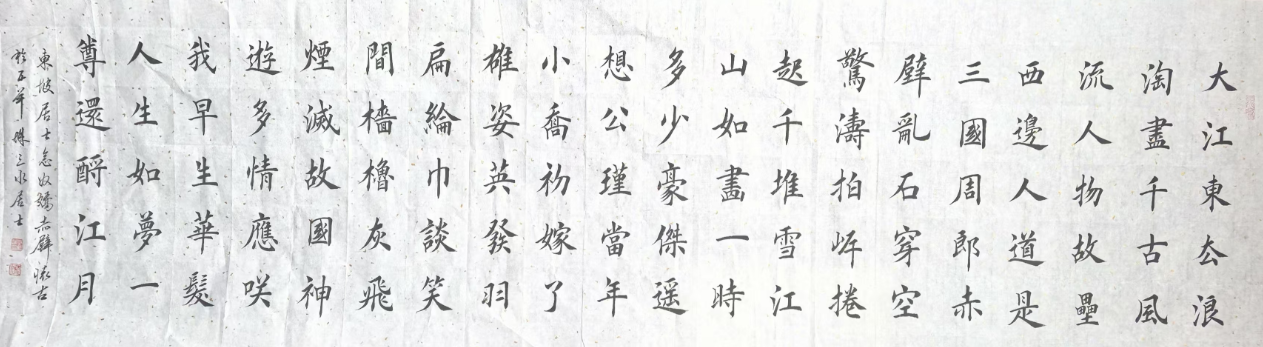 大江東去浪
淘盡千古風
流人物故壘
西邊人道是
三國周郎赤
壁亂石穿空
驚濤拍岸捲
起千堆雪江
山如畫一時
多少豪傑遥
想公瑾當年
小喬初嫁了
雄姿英發羽
扇綸巾談笑
間檣櫓灰飛
煙滅故國神
遊多情應咲
我早生華髮
人生如夢一
尊還酹江月
東坡居士念奴嬌赤壁懷古
於三水居士